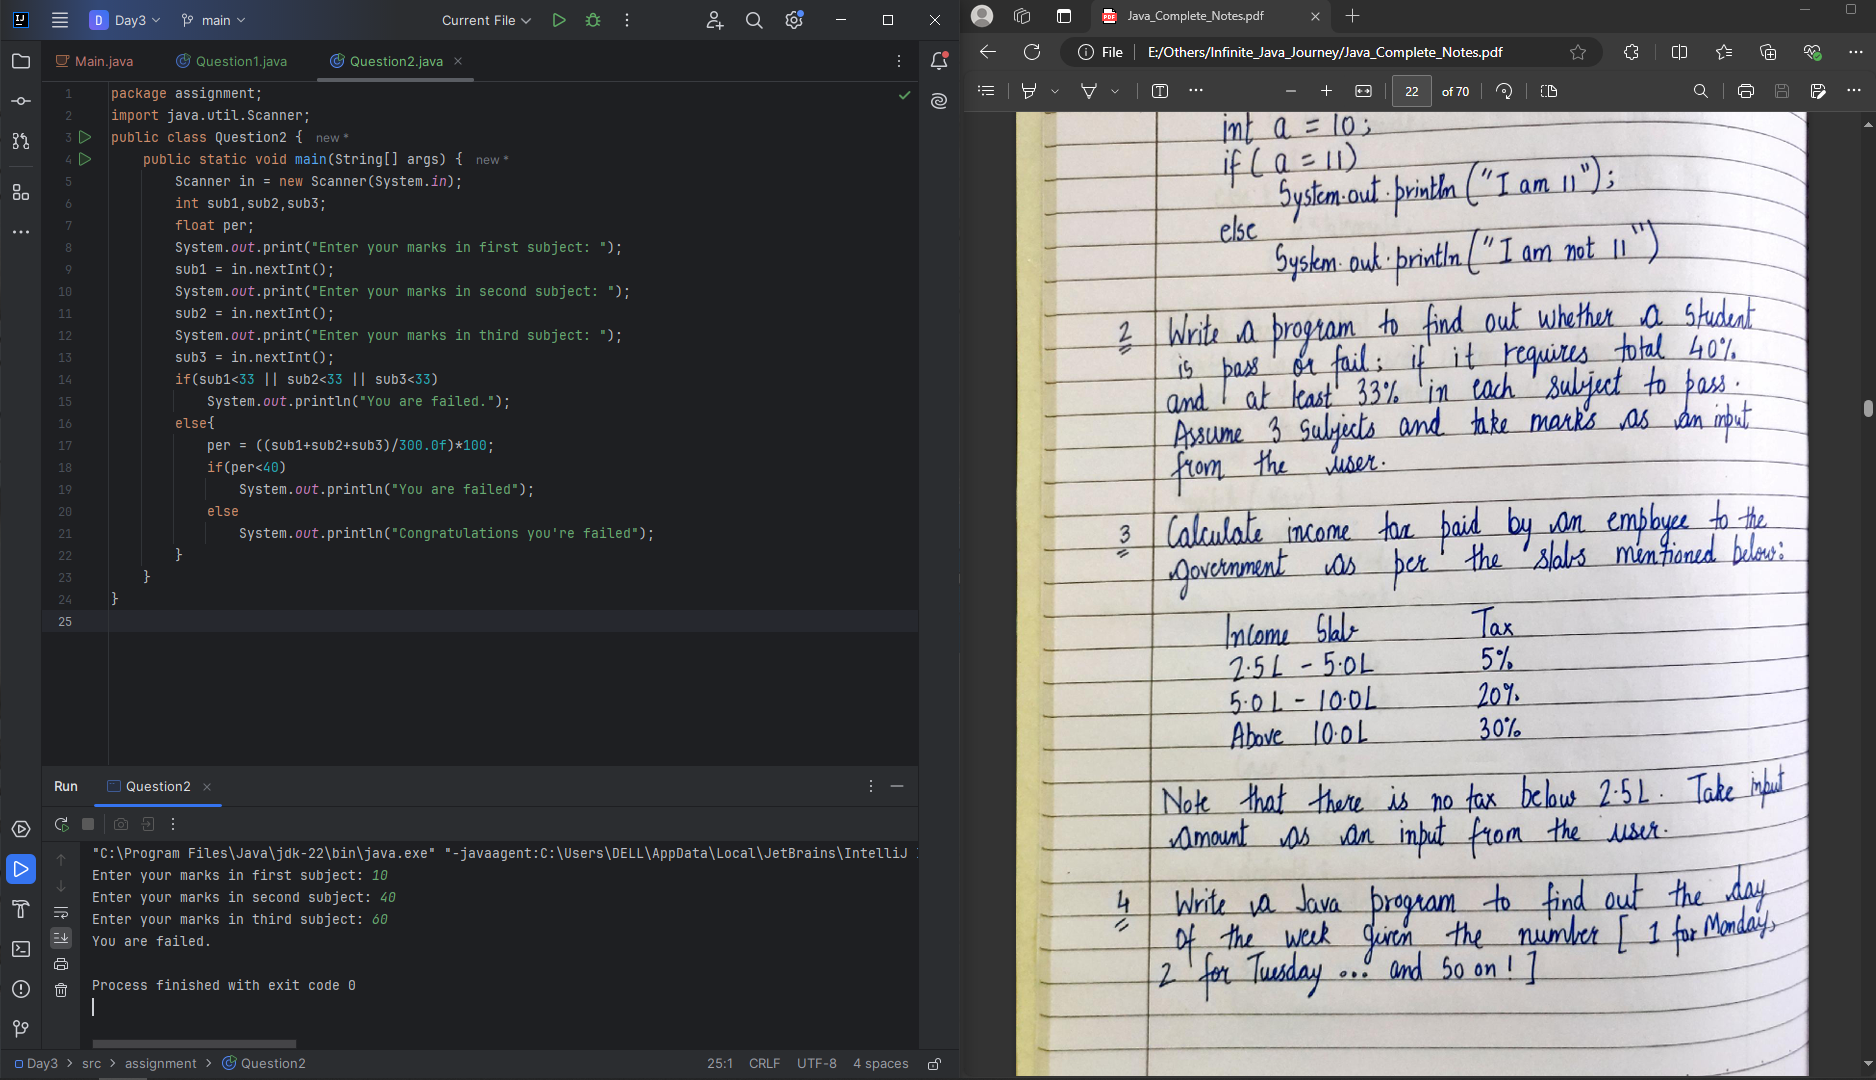 Day3
main
Current File
Main.java
Question1.java
Question2.java
1 package assignment;
2 import java.util.Scanner;
3 public class Question2 { new *
4 public static void main(String[] args) { new *
5 Scanner in = new Scanner(System.in);
6 int sub1,sub2,sub3;
7 float per;
8 System.out.print("Enter your marks in first subject: ");
9 sub1 = in.nextInt();
10 System.out.print("Enter your marks in second subject: ");
11 sub2 = in.nextInt();
12 System.out.print("Enter your marks in third subject: ");
13 sub3 = in.nextInt();
14 if(sub1<33 || sub2<33 || sub3<33)
15 System.out.println("You are failed.");
16 else{
17 per = ((sub1+sub2+sub3)/300.0f)*100;
18 if(per<40)
19 System.out.println("You are failed");
20 else
21 System.out.println("Congratulations you're failed");
22 }
23 }
24 }
25
Run Question2
"C:\Program Files\Java\jdk-22\bin\java.exe" "-javaagent:C:\Users\DELL\AppData\Local\JetBrains\IntelliJ
Enter your marks in first subject: 10
Enter your marks in second subject: 40
Enter your marks in third subject: 60
You are failed.
Process finished with exit code 0
Day3 > src > assignment > Question2
25:1 CRLF UTF-8 4 spaces
Java_Complete_Notes.pdf
File E:/Others/Infinite_Java_Journey/Java_Complete_Notes.pdf
22 of 70
int a = 10;
if ( a = 11)
System.out.println ("I am 11");
else
System.out.println ("I am not 11")
2 Write a program to find out whether a student
is pass or fail; if it requires total 40%
and at least 33% in each subject to pass.
Assume 3 Subjects and take marks as an input
from the user.
3 Calculate income tax paid by an employee to the
government as per the slabs mentioned below:
Income Slab Tax
2.5L - 5.0L 5%
5.0L - 10.0L 20%
Above 10.0L 30%
Note that there is no tax below 2.5L. Take input
amount as an input from the user.
4 Write a Java program to find out the day
of the week given the number [ 1 for Monday,
2 for Tuesday ... and so on! ]